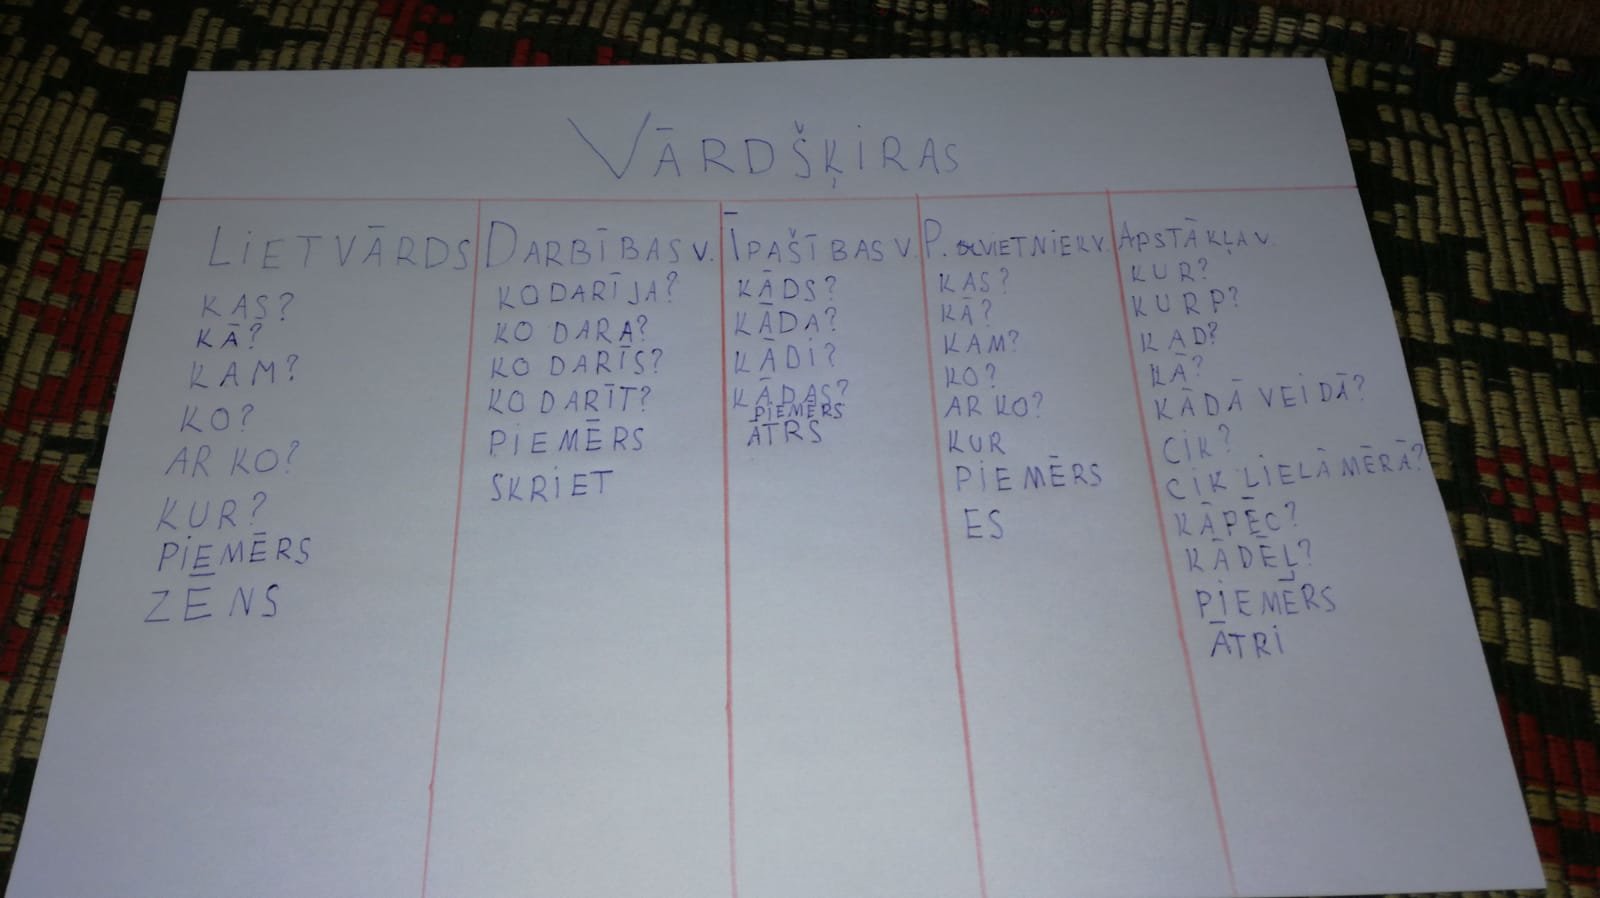 VĀRDŠĶIRAS
LIETVĀRDS
KAS?
KĀ?
KAM?
KO?
AR KO?
KUR?
PIEMĒRS
ZĒNS
DARBĪBAS V.
KO DARĪJA?
KO DARA?
KO DARĪS?
KO DARĪT?
PIEMĒRS
SKRIET
ĪPAŠĪBAS V.
KĀDS?
KĀDA?
KĀDI?
KĀDAS?
PIEMĒRS
ĀTRS
P. VIETNIEKV.
KAS?
KĀ?
KAM?
KO?
AR KO?
KUR
PIEMĒRS
ES
APSTĀKĻA V.
KUR?
KURP?
KAD?
KĀ?
KĀDĀ VEIDĀ?
CIK?
CIK LIELĀ MĒRĀ?
KĀPĒC?
KĀDĒĻ?
PIEMĒRS
ĀTRI